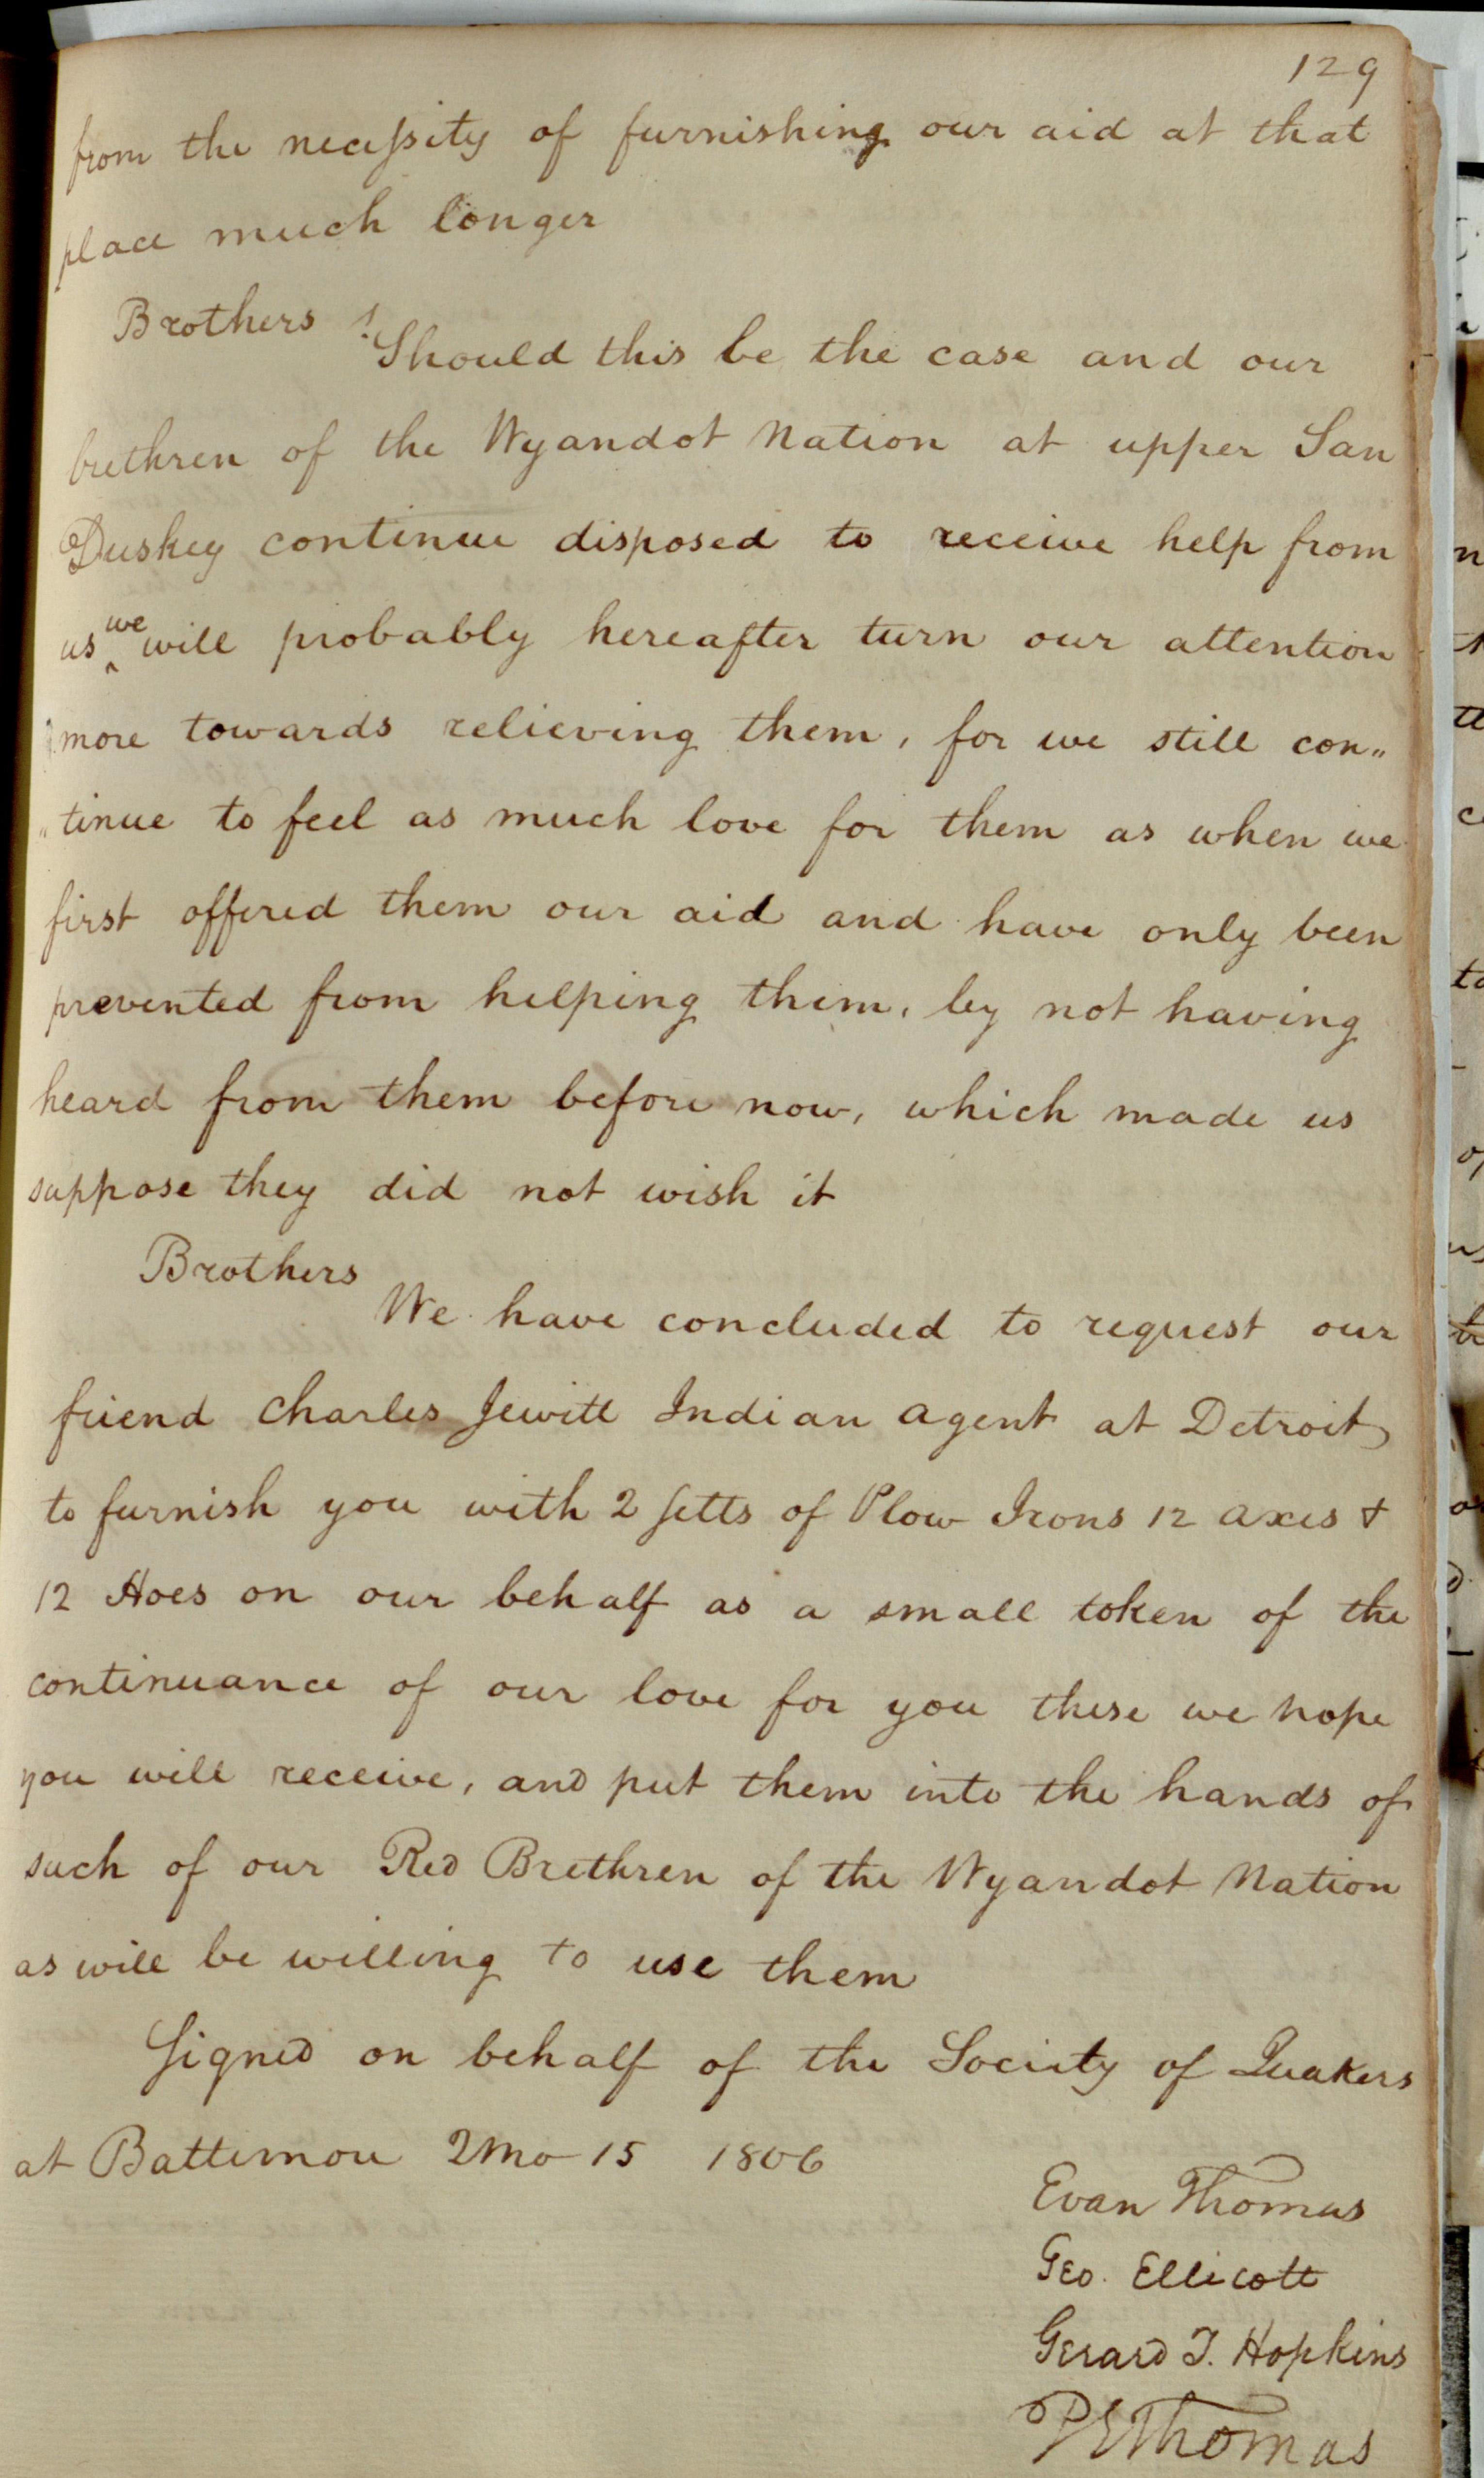 129
from the necessity of furnishing our aid at that
place much longer
Brothers !
Should this be the case and our
brethren of the Wyandot Nation at upper San
Duskey continue disposed to receive help from
us we will probably hereafter turn our attention
more towards relieving them, for we still con„
„tinue to feel as much love for them as when we
first offered them our aid and have only been
prevented from helping them, by not having
heard from them before now, which made us
suppose they did not wish it
Brothers
We have concluded to request our
friend Charles Jewitt Indian agent at Detroit
to furnish you with 2 setts of Plow Irons 12 axes &
12 Hoes on our behalf as a small token of the
continuance of our love for you these we hope
you will receive, and put them into the hands of
such of our Red Brethren of the Wyandot Nation
as will be willing to use them
Signed on behalf of the Society of Quakers
at Baltimore 2mo 15 1806
Evan Thomas
Geo. Ellicott
Gerard T. Hopkins
P E Thomas